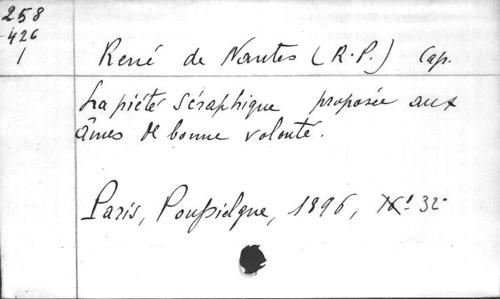 258
426
1
René de Nantes (R.P.) Cap.
La piété séraphique proposée aux
âmes de bonne volonté.
Paris, Poussielgue, 1896, 32°